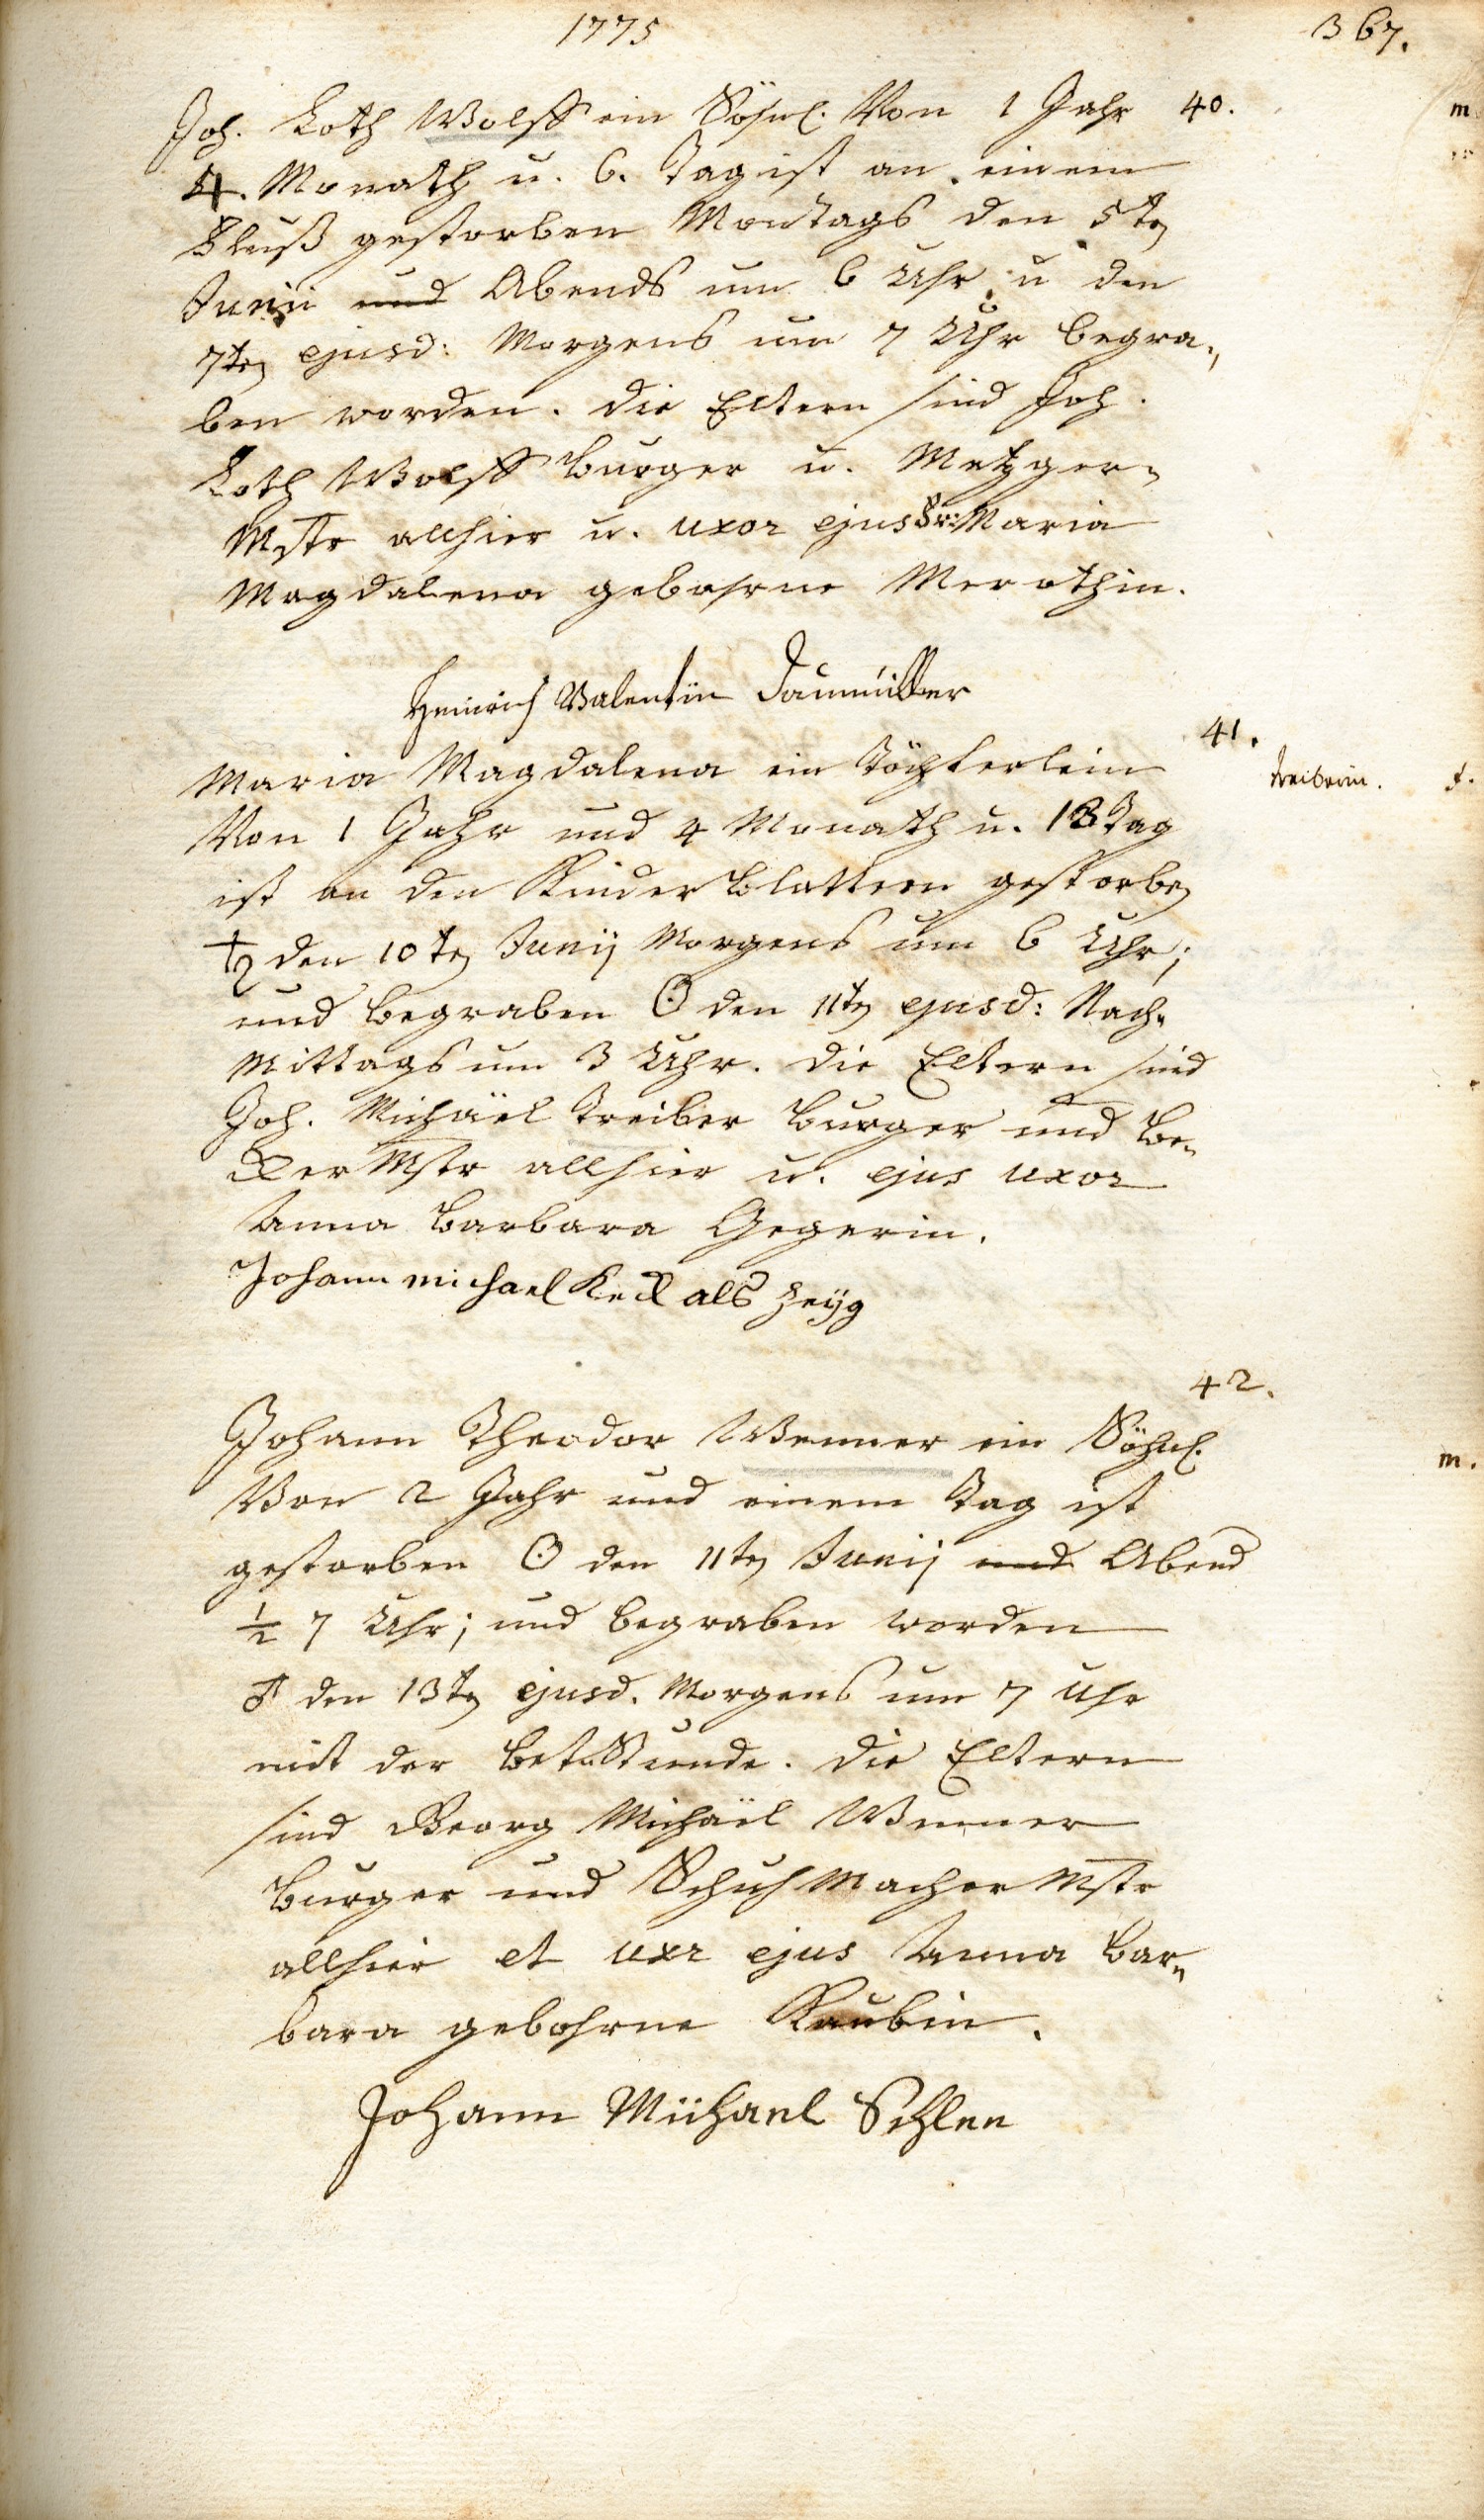 1775
367.
Joh. Loth Wolff ein Söhnl. Von 1 Jahr 40.
m.
4. Monath u. 6. Tag ist an einem
Fluß gestorben Montags den 5ten
Junii und Abends um 6 Uhr u den
7ten ejusd: Morgens um 7 Uhr begra„
ben worden. die Eltern sind Joh.
Loth Wolff burger u. Metzger„
Mstr allhier u. uxor ejus Fr: Maria
Magdalena gebohrne
Heinrich Valentin
41.
Maria Magdalena ein Töchterlein
Treiberin. f.
Von 1 Jahr und 4 Monath u. 13 Tag
ist an den Kinder blattern gestorben
♄ den 10ten Junij Morgens um 6 Uhr;
und begraben ☉ den 11ten ejusd: Nach„
Mittags um 3 Uhr. die Eltern sind
Joh. Michäel Treiber burger und be„
cker Mstr allhier u. ejus uxor
Anna barbara Gegerin.
Johann michael Keck als Zeüg
42.
Johann Theodor Wenner ein Söhnl.
m.
Von 2 Jahr und einem Tag ist
gestorben ☉ den 11ten Junij und Abend
½ 7 Uhr; und begraben worden
♂ den 13ten ejusd. Morgens um 7 Uhr
mit der bet Stunde. die Eltern
sind Georg Michäel Wenner
burger und Schuh Macher Mstr
allhier et uxr ejus Anna bar„
bara gebohrne Raubin.
Johann Michael Schlee